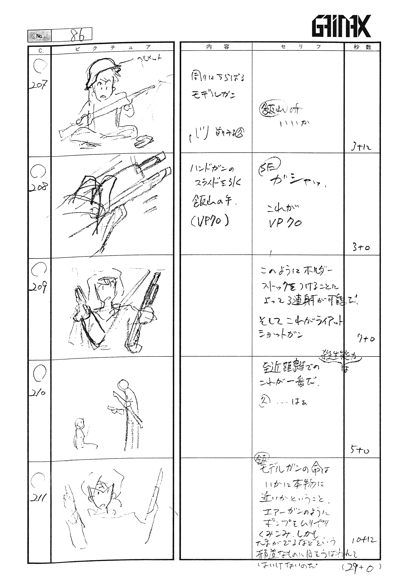 GAINAX
No. 86
C ピクチュア 内容 セリフ 秒数
207
ヘルメット
周りはちらばる
モデルガン
飯山の件
いいか
3+12
208
ハンドガンの
スライドを引く
飯山の手.
(VP70)
SE
ガシャッ.
これが
VP70
3+0
209
このようにホルダー
ストックをつけることに
よって3連射が可能だ.
そして これがライアット
ショットガン
7+0
210
至近距離での
殺生能力
な
これが一番だ.
…はぁ
5+0
211
モデルガンの命は
いかに本物に
近いかということ.
エアーガンのように
ポンプをムリヤリ
くみこみ.しかも
たまがでるなどという
はいけないのだ
10+12
(29+0)